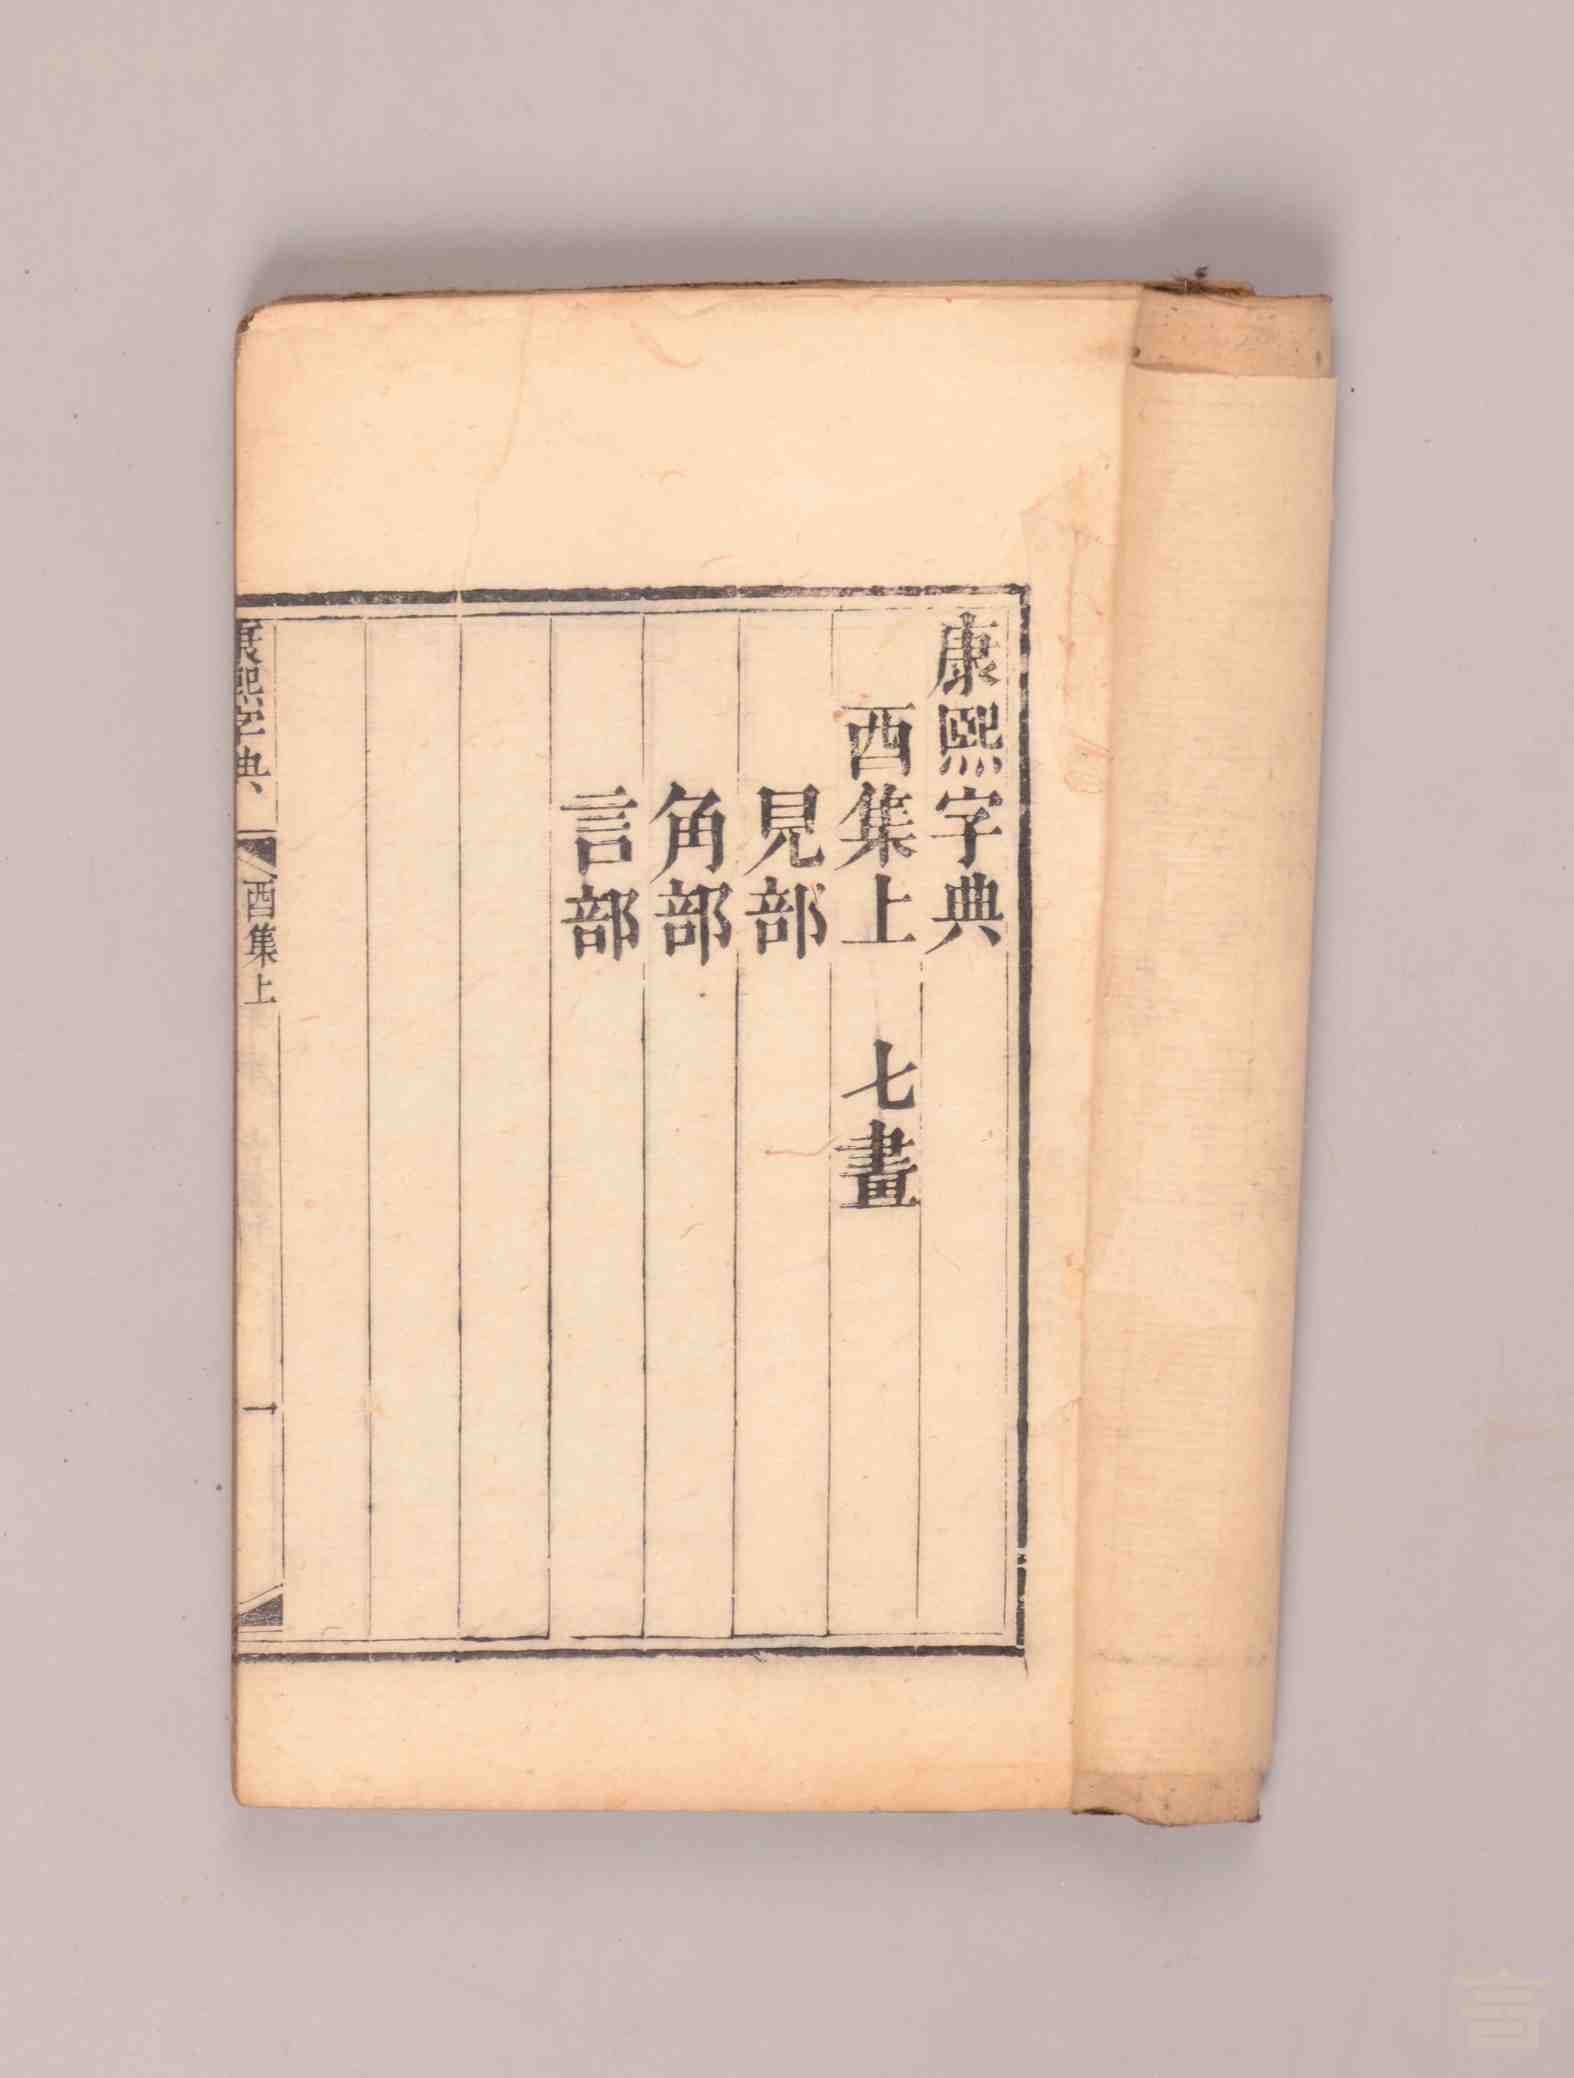 康熙字典
酉集上　七畫
見部
角部
言部
康熙字典
酉集上
一